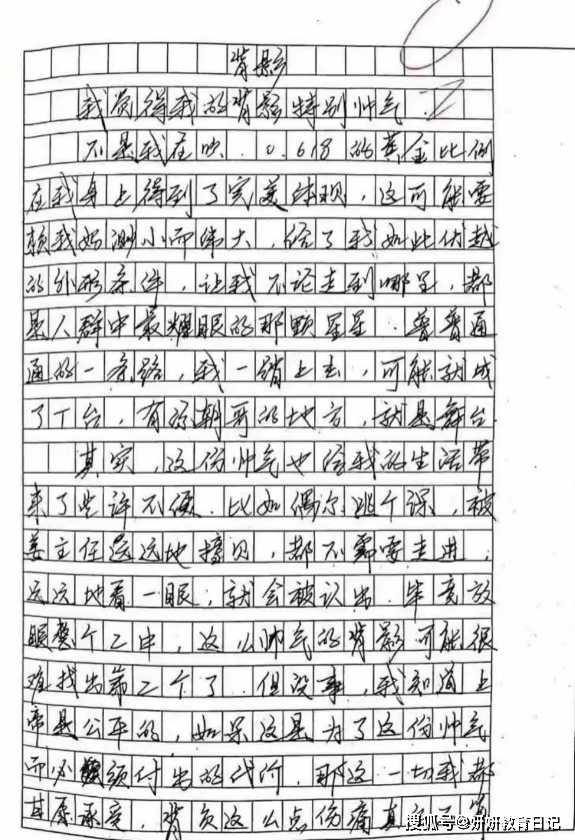 背影
我觉得我的背影特别帅气.
不是我在吹.0.618的黄金比例
在我身上得到了完美体现,这可能要
赖我妈渺小而伟大,给了我如此优越
的外形条件,让我不论走到哪里,都
是人群中最耀眼的那颗星星.普普通
通的一条路,我一踏上去,可能就成
了T台,有 朝哥的地方,就是舞台.
其实,这份帅气也给我的生活带
来了些许不便.比如偶尔逃个课,被
姜主任远远地撞见,都不需要走进,
远远地看一眼,就会被认出.毕竟放
眼整个二中,这么帅气的背影可能很
难找出第二个了.但没事,我知道上
帝是公平的,如果这是为了这份帅气
而必须付出的代价,那这一切我都
甘愿承受,背负这么点伤痛真的
搜狐号@妍妍教育日记